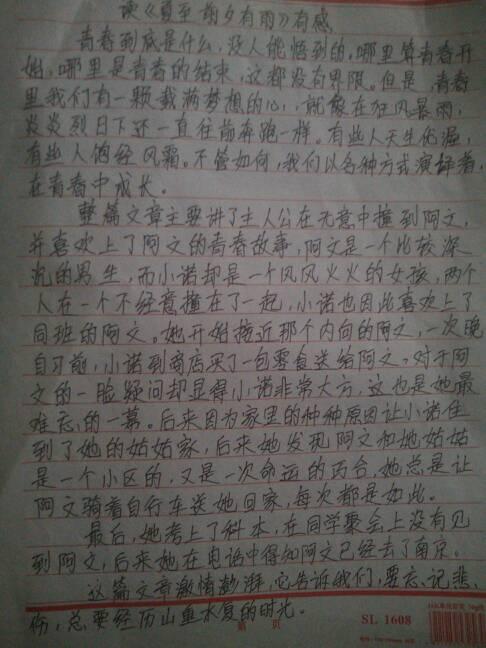 读《夏至 前夕有雨》有感
青春到底是什么,没人能悟到的,哪里算青春开
始,哪里是青春的结束,这都没有界限。但是,青春
里我们有一颗载满梦想的心,就像在狂风暴雨,
炎炎烈日下还一直往前奔跑一样。有些人天生优渥,
有些人饱经风霜。不管如何,我们以各种方式演绎着,
在青春中成长。
整篇文章主要讲了主人公在无意中撞到阿文,
并喜欢上了阿文的青春故事,阿文是一个比较深
沉的男生,而小诺却是一个风风火火的女孩,两个
人在一个不经意撞在了一起,小诺也因此喜欢上了
同班的阿文。她开始接近那个内向的阿文,一次晚
自习前,小诺到商店买了一包零食送给阿文。对于阿
文的一脸疑问却显得小诺非常大方,这也是她最
难忘的一幕。后来因为家里的种种原因让小诺住
到了她的姑姑家,后来她发现阿文和她姑姑
是一个小区的,又是一次命运的巧合,她总是让
阿文骑着自行车送她回家,每次都是如此。
最后,她考上了科本,在同学聚会上没有见
到阿文,后来她在电话中得知阿文已经去了南京。
这篇文章激情澎湃,它告诉我们,要忘记悲
伤,总要经历山重水复的时光。
第 页
SL 1608